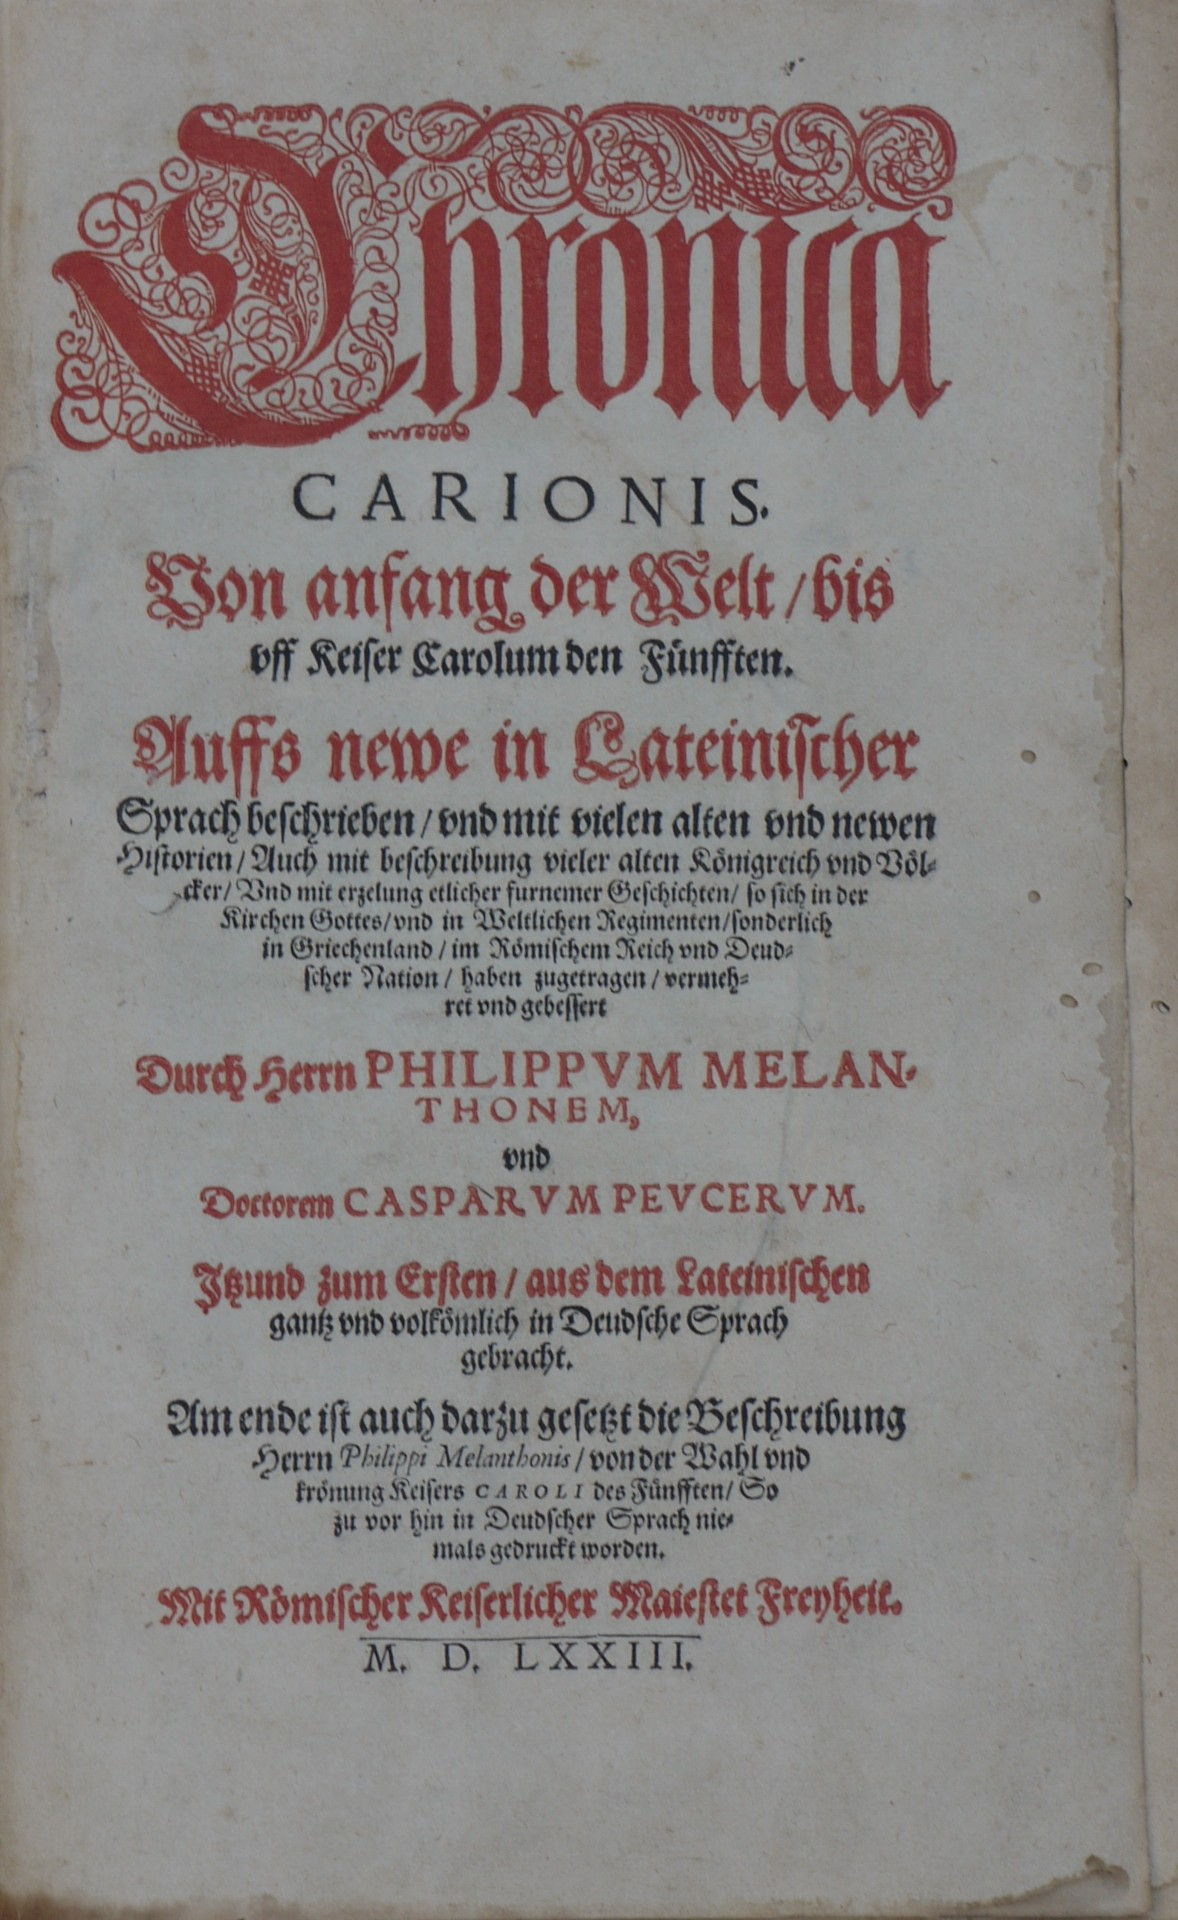 Chronica
CARIONIS.
Von anfang der Welt / bis
vff Keiser Carolum den Fünfften.
Auffs newe in Lateinischer
Sprach beschrieben / vnd mit vielen alten vnd newen
Historien / Auch mit beschreibung vieler alten Königreich vnd Völ-
cker / Vnd mit erzelung etlicher furnemer Geschichten / so sich in der
Kirchen Gottes / vnd in Weltlichen Regimenten / sonderlich
in Griechenland / im Römischem Reich vnd Deud-
scher Nation / haben zugetragen / vermeh-
ret vnd gebessert
Durch Herrn PHILIPPVM MELAN-
THONEM,
vnd
Doctorem CASPARVM PEVCERVM.
Jtzund zum Ersten / aus dem Lateinischen
gantz vnd volkömlich in Deudsche Sprach
gebracht.
Am ende ist auch darzu gesetzt die Beschreibung
Herrn Philippi Melanthonis / von der Wahl vnd
krönung Keisers CAROLI des Fünfften / So
zu vor hin in Deudscher Sprach nie-
mals gedruckt worden.
Mit Römischer Keiserlicher Maiestet Freyheit.
M. D. LXXIII.